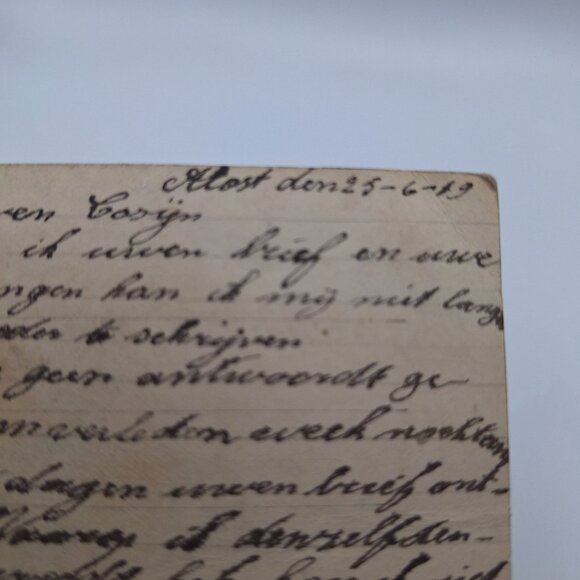 Alost den 25-6-19
ven Cosijn
ik uwen brief en uwe
ngen kan ik mij niet lange
eder te schrijven
geen antwoordt ge-
verleden week nochtans
dagen uwen brief ont-
ik denzelfden-